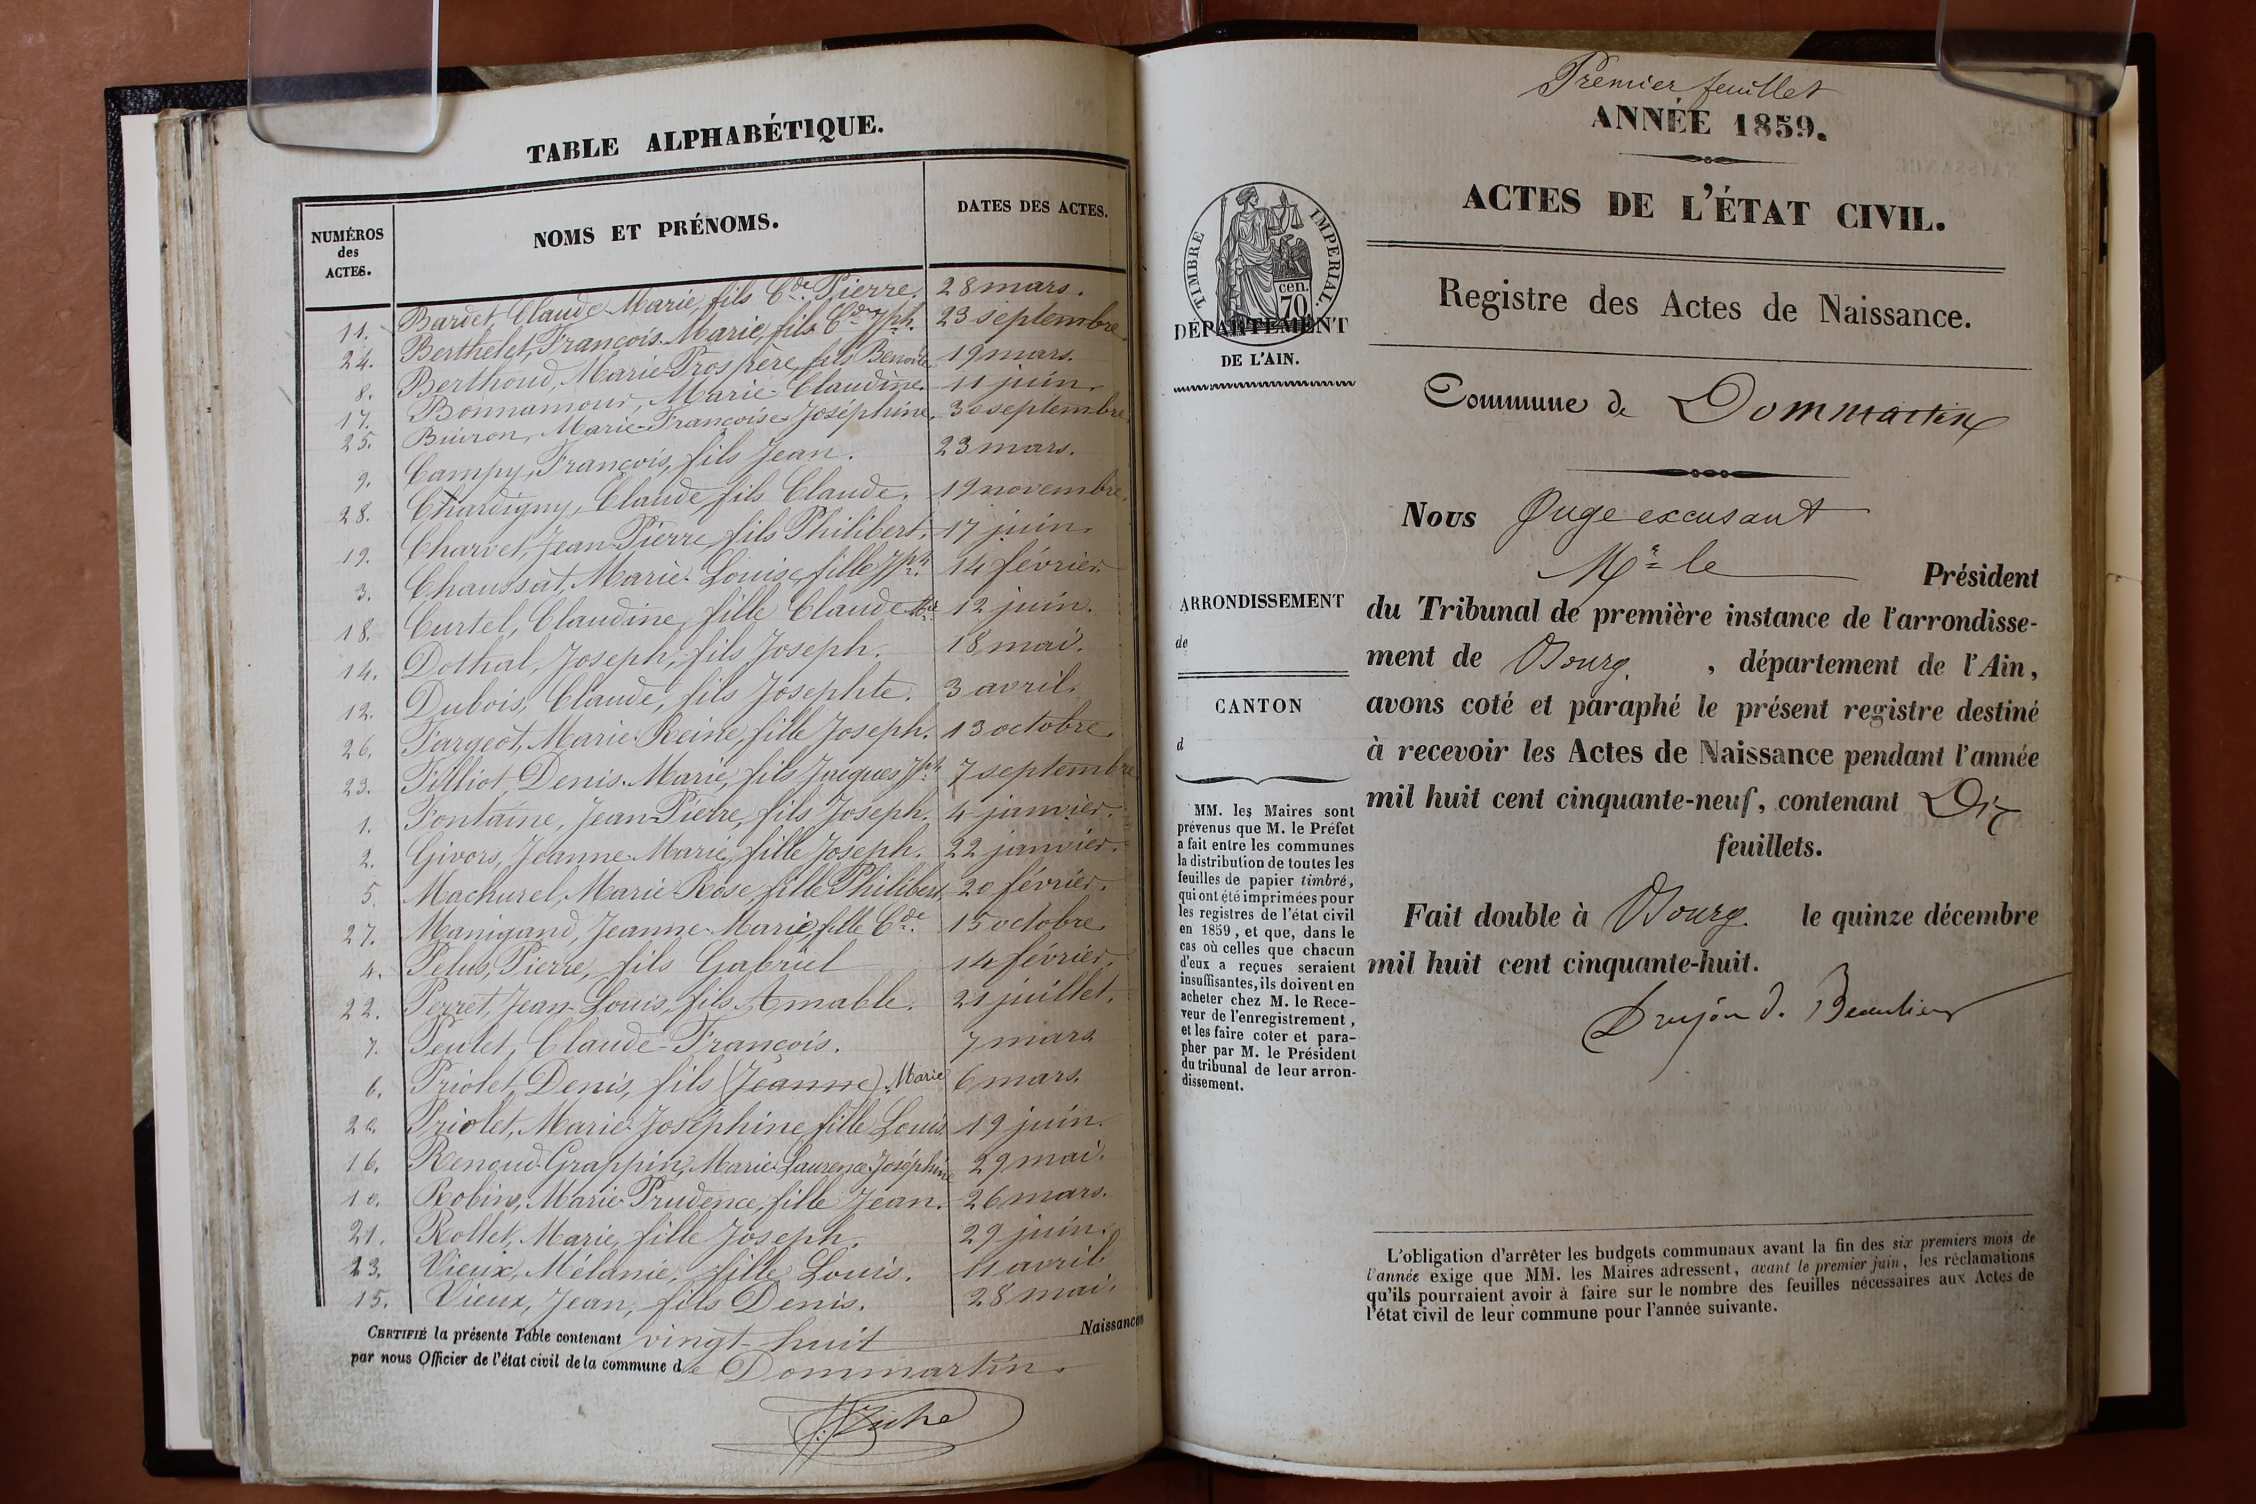 TABLE ALPHABÉTIQUE.
NUMÉROS des ACTES. NOMS ET PRÉNOMS. DATES DES ACTES.
11. Bardet Claude Marie, fils Cde. Pierre. 28 mars.
24. Berthelet, François-Marie, fils Cde Jph. 23 septembre
8. Berthoud, Marie-Prospère, fils Benoît 19 mars.
17. Bonnamour, Marie-Claudine. 11 juin.
25. Buiron, Marie-Françoise-Joséphine. 30 septembre
9. Campy, François, fils Jean. 23 mars.
28. Chardigny, Claude, fils Claude. 19 novembre.
19. Charvet, Jean-Pierre, fils Philibert. 17 juin.
3. Chaussat, Marie-Louise, fille Jph. 14 février.
18. Curtel, Claudine, fille Claude 12 juin.
14. Dothal, Joseph, fils Joseph. 18 mai.
12. Dubois, Claude, fils Josephte. 3 avril.
26. Fargeot, Marie-Reine, fille Joseph. 13 octobre.
23. Filliot, Denis-Marie, fils Jacques Jph 7 septembre
1. Fontaine, Jean-Pierre, fils Joseph. 4 janvier.
2. Givors, Jeanne-Marie, fille Joseph. 22 janvier.
5. Machurel, Marie-Rose, fille Philibert 20 février.
27. Manigand, Jeanne-Marie, fille Cde. 15 octobre.
4. Pelus, Pierre, fils Gabriel 14 février.
22. Perret, Jean-Louis, fils Amable. 21 juillet.
7. Peulet, Claude-François. 7 mars
6. Priolet, Denis, fils (Jeanne) Marie 6 mars.
20. Priolet, Marie-Joséphine fille Louis 19 juin.
16. Renoud-Grappin, Marie-Laurence-Joséphine 29 mai.
10. Robin, Marie-Prudence, fille Jean. 26 mars.
21. Rollet, Marie, fille Joseph. 29 juin.
23. Vieux, Mélanie, fille Louis. 11 avril
15. Vieux, Jean, fils Denis. 28 mai.
CERTIFIÉ la présente Table contenant vingt-huit Naissances
par nous Officier de l'état civil de la commune de Dommartin.
Premier feuillet
ANNÉE 1859.
ACTES DE L'ÉTAT CIVIL.
TIMBRE IMPERIAL.
70 cen.
DÉPARTEMENT
DE L'AIN.
Registre des Actes de Naissance.
Commune de Dommartin
Nous Juge excusant
Mr. le Président
du Tribunal de première instance de l'arrondisse-
ment de Bourg, département de l'Ain,
avons coté et paraphé le présent registre destiné
à recevoir les Actes de Naissance pendant l'année
mil huit cent cinquante-neuf, contenant Dix
feuillets.
Fait double à Bourg le quinze décembre
mil huit cent cinquante-huit.
Drujon d. Beaulieu
ARRONDISSEMENT
de
CANTON
d
MM. les Maires sont
prévenus que M. le Préfet
a fait entre les communes
la distribution de toutes les
feuilles de papier timbré,
qui ont été imprimées pour
les registres de l'état civil
en 1859, et que, dans le
cas où celles que chacun
d'eux a reçues seraient
insuffisantes, ils doivent en
acheter chez M. le Rece-
veur de l'enregistrement,
et les faire coter et para-
pher par M. le Président
du tribunal de leur arron-
dissement.
L'obligation d'arrêter les budgets communaux avant la fin des six premiers mois de
l'année exige que MM. les Maires adressent, avant le premier juin, les réclamations
qu'ils pourraient avoir à faire sur le nombre des feuilles nécessaires aux Actes de
l'état civil de leur commune pour l'année suivante.